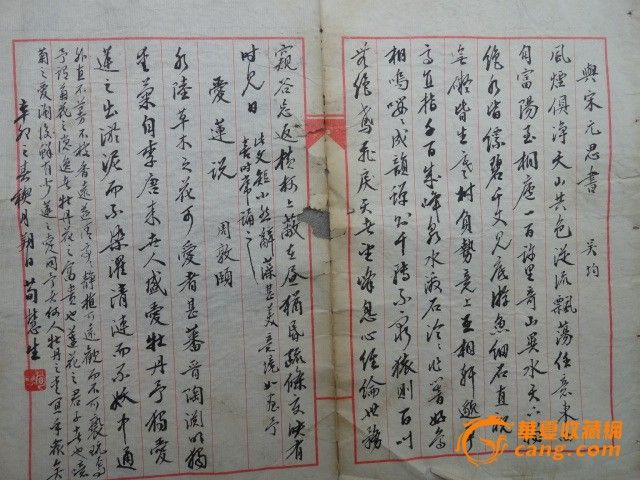 與宋元思書 吳均
風煙俱淨天山共色從流飄蕩任意東
自富陽至桐廬一百許里奇山異水天下
絕水皆縹碧千丈見底游魚細石直視
無礙皆生寒樹負勢競上互相軒邈
高直指千百成峰泉水激石泠泠作響好鳥
相鳴嚶嚶成韻蟬則千轉不窮猿則百叫
無絕鳶飛戾天者望峰息心經綸世務
窺谷忘返橫柯上蔽在晝猶昏疏條交映有
時見日
此文短小然辭藻甚美
愛蓮說 周敦頤
水陸草木之花可愛者甚蕃晉陶淵明獨
愛菊自李唐來世人盛愛牡丹予獨愛
蓮之出淤泥而不染濯清漣而不妖中通
外直不蔓不枝香遠益清亭亭靜植可遠觀而不可褻玩
予謂菊花之隱逸者牡丹花之富貴者蓮花之君子者也噫
菊之愛陶後鮮有聞蓮之愛同予者何人牡丹之愛宜乎眾矣
辛卯之春 月朔日荀慧生
華夏收藏網
cang.com